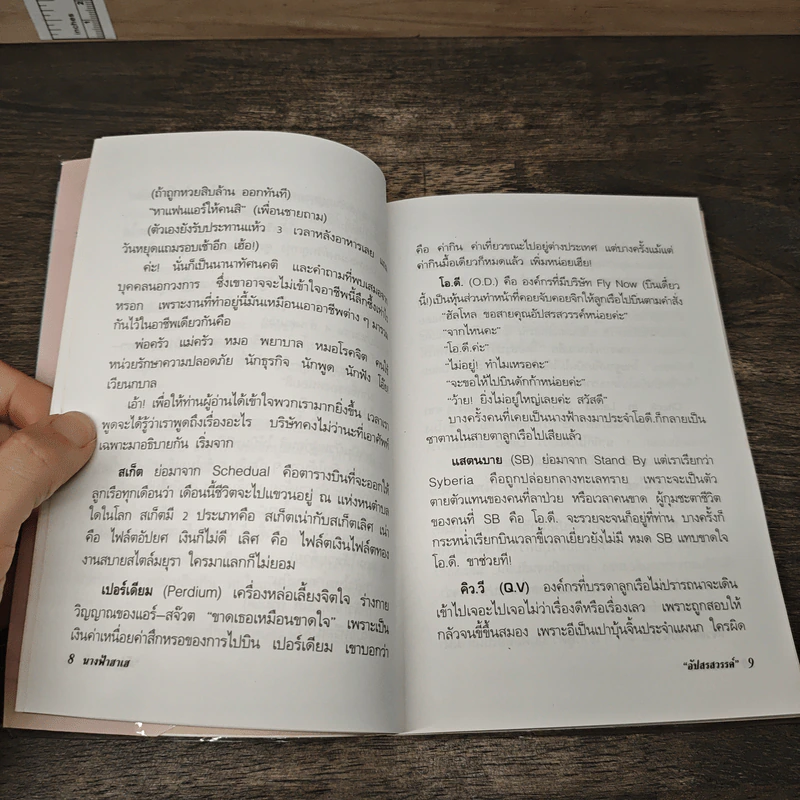 (ถ้าถูกหวยสิบล้าน ออกทันที)
"หาแฟนแอร์ให้คนสิ" (เพื่อนชายถาม)
(ตัวเองยังรับประทานแห้ว 3 เวลาหลังอาหารเลย
วันหยุดแถมรอบเช้าอีก เฮ้อ!)
ค่ะ! นั่นก็เป็นนานาทัศนคติ และคำถามที่พบเสมอจาก
บุคคลนอกวงการ ซึ่งเขาอาจจะไม่เข้าใจอาชีพนี้ลึกซึ้งเท่าไร
หรอก เพราะงานที่ทำอยู่นี้มันเหมือนเอาอาชีพต่าง ๆ มารวม
กันไว้ในอาชีพเดียวกันคือ
พ่อครัว แม่ครัว หมอ พยาบาล หมอโรคจิต คนใช้
หน่วยรักษาความปลอดภัย นักธุรกิจ นักพูด นักฟัง โอ๊ย
เวียนกบาล
เอ้า! เพื่อให้ท่านผู้อ่านได้เข้าใจพวกเรามากยิ่งขึ้น เวลาเรา
พูดจะได้รู้ว่าเราพูดถึงเรื่องอะไร บริษัทคงไม่ว่านะที่เอาศัพท์
เฉพาะมาอธิบายกัน เริ่มจาก
สเก็ต ย่อมาจาก Schedual คือตารางบินที่จะออกให้
ลูกเรือทุกเดือนว่า เดือนนี้ชีวิตจะไปแขวนอยู่ ณ แห่งหนตำบล
ใดในโลก สเก็ตมี 2 ประเภทคือ สเก็ตเน่ากับสเก็ตเลิศ เน่า
คือ ไฟล์ตอัปยศ เงินก็ไม่ดี เลิศ คือ ไฟล์ตเงินไฟล์ตทอง
งานสบายสไตล์มยุรา ใครมาแลกก็ไม่ยอม
เปอร์เดียม (Perdium) เครื่องหล่อเลี้ยงจิตใจ ร่างกาย
วิญญาณของแอร์–สจ๊วต "ขาดเธอเหมือนขาดใจ" เพราะเป็น
เงินค่าเหนื่อยค่าสึกหรอของการไปบิน เปอร์เดียม เขาบอกว่า
8 นางฟ้าฮาเฮ
คือ ค่ากิน ค่าเที่ยวขณะไปอยู่ต่างประเทศ แต่บางครั้งแม้แต่
ค่ากินมื้อเดียวก็หมดแล้ว เพิ่มหน่อยเฮีย!
โอ.ดี. (O.D.) คือ องค์กรที่มีบริษัท Fly Now (บินเดี๋ยว
นี้!)เป็นหุ้นส่วนทำหน้าที่คอยจับคอยจิกให้ลูกเรือไปบินตามคำสั่ง
"ฮัลโหล ขอสายคุณอัปสรสวรรค์หน่อยค่ะ"
"จากไหนคะ"
"โอ.ดี.ค่ะ"
"ไม่อยู่! ทำไมเหรอคะ"
"จะขอให้ไปบินดักก้าหน่อยค่ะ"
"ว้าย! ยิ่งไม่อยู่ใหญ่เลยค่ะ สวัสดี"
บางครั้งคนที่เคยเป็นนางฟ้าลงมาประจำโอดี.ก็กลายเป็น
ซาตานในสายตาลูกเรือไปเสียแล้ว
แสตนบาย (SB) ย่อมาจาก Stand By แต่เราเรียกว่า
Syberia คือถูกปล่อยกลางทะเลทราย เพราะจะเป็นตัว
ตายตัวแทนของคนที่ลาป่วย หรือเวลาคนขาด ผู้กุมชะตาชีวิต
ของคนที่ SB คือ โอ.ดี. จะรวยจะจนก็อยู่ที่ท่าน บางครั้งก็
กระหน่ำเรียกบินเวลาขี้เวลาเยี่ยวยังไม่มี หมด SB แทบขาดใจ
โอ.ดี. ขาช่วยที!
คิว.วี (Q.V) องค์กรที่บรรดาลูกเรือไม่ปรารถนาจะเดิน
เข้าไปเจอะไปเจอไม่ว่าเรื่องดีหรือเรื่องเลว เพราะถูกสอบให้
กลัวจนขี้ขึ้นสมอง เพราะอีเป็นเปาบุ้นจิ้นประจำแผนก ใครผิด
"อัปสรสวรรค์" 9